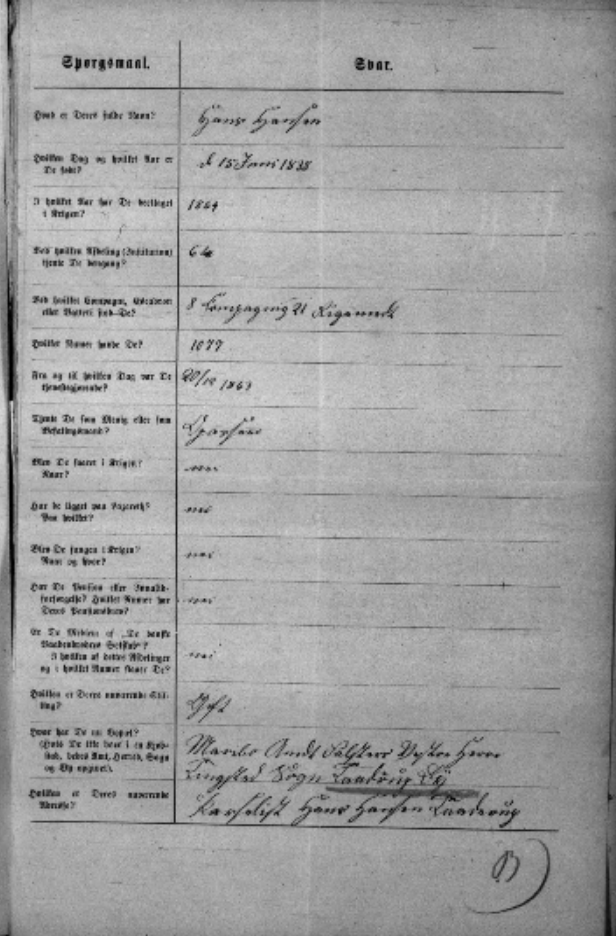 Spørgsmaal. Svar.
Hvad er Deres fulde Navn? Hans Hansen
Hvilken Dag og hvilket Aar er d 15 Juni 1838
De født?
I hvilket Aar har De deeltaget 1864
i Krigen?
Ved hvilken Afdeling (Institution)
tjente De dengang?
Ved hvilket Compagni, Escadron 8 Compagnig 21 Regiment
eller Batteri stod De?
Hvilket Numer havde De? 1077
Fra og til hvilken Dag var De 20/12 1863
tjenestegjørende?
Tjente De som Menig eller som
Befalingsmand?
Blev De saaret i Krigen? nei
Naar?
Har de ligget paa Lazareth? nei
Paa hvilket?
Blev De fangen i Krigen? nei
Naar og hvor?
Har De Pension eller Invalide- nei
forsørgelse? Hvilket Numer har
Deres Pensionsbrev?
Er De Medlem af „De danske
Vaabenbrødres Selskab"?
I hvilken af dettes Afdelinger nei
og i hvilket Numer staaer De?
Hvilken er Deres nuværende Stil- Gift
ling?
Hvor har De nu Bopæl?
(Hvis De ikke boer i en Kjøb- Maribo Amdt Falsters Vestre Herre
stad, bedes Amt, Herred, Sogn Tingsted Sogn Taaderup By
og By opgivet).
Hvilken er Deres nuværende Hans Hansen Taaderup
Adresse?